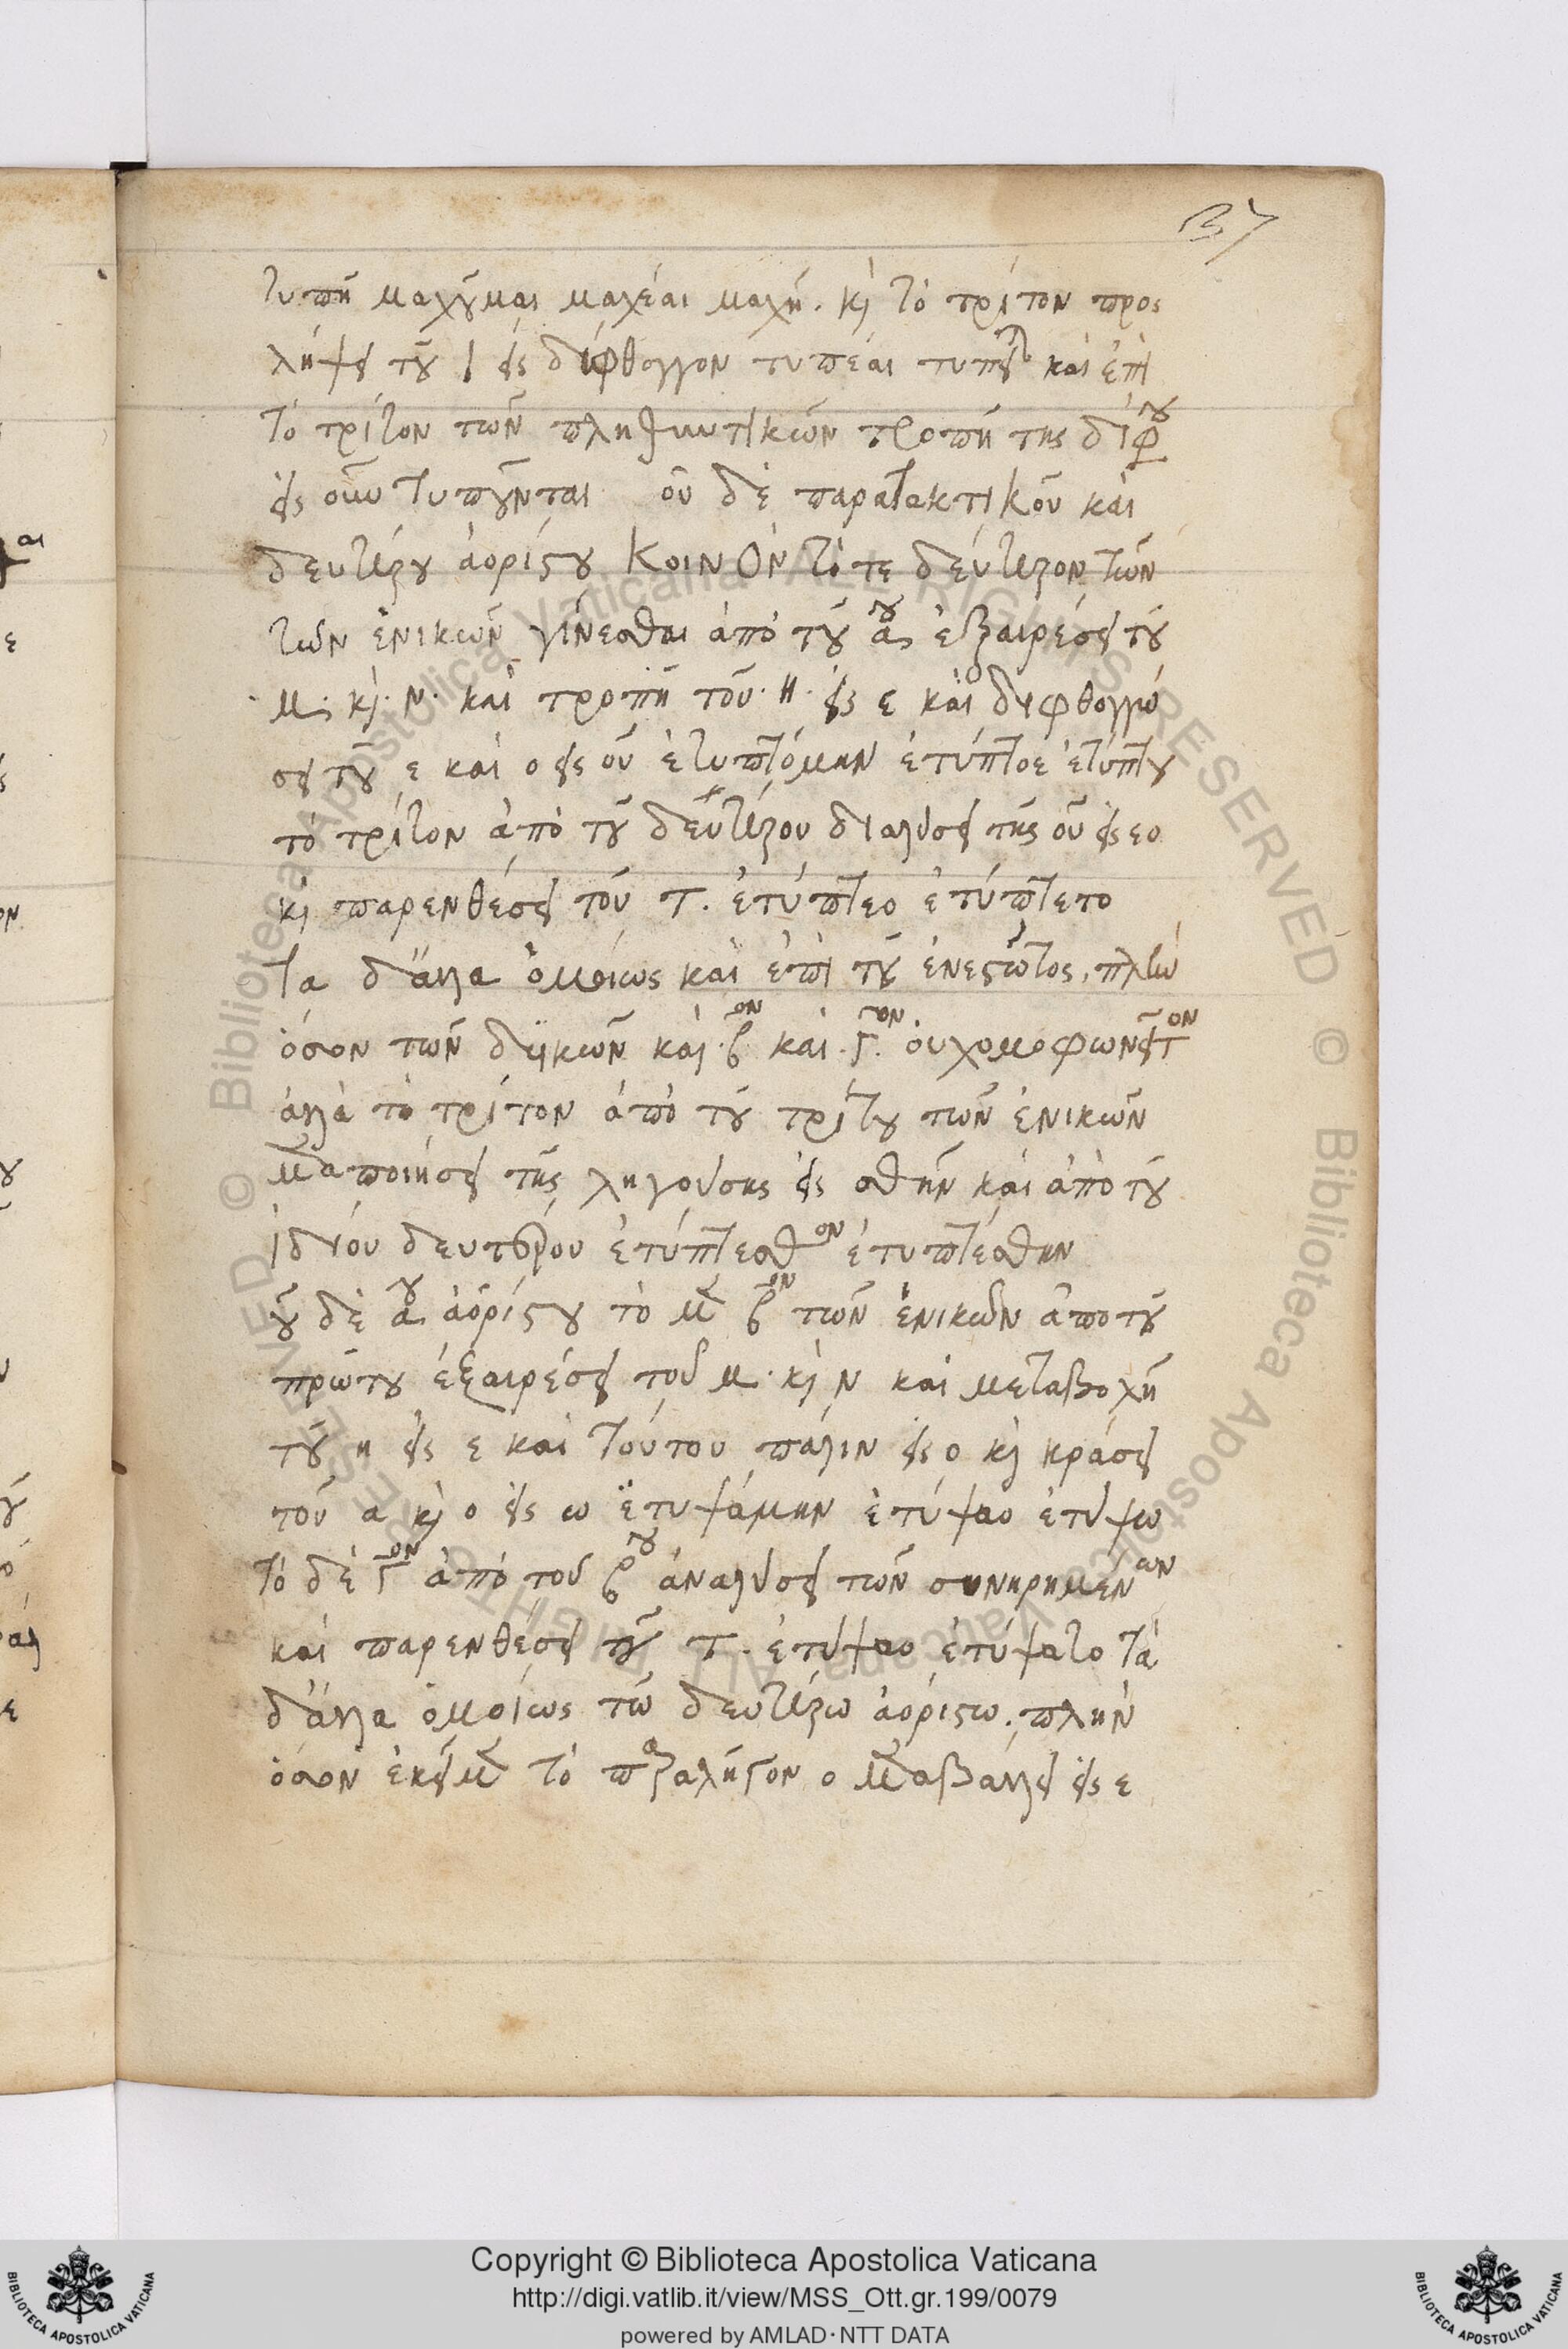 37
τυπῆ μαχοῦμαι μαχέαι μαχῆ. κὶ τὸ τρίτον προς
λήψει τοῦ ι εἰς δίφθογγον τυπέαι τυπεῖται καὶ ἐπὶ
τὸ τρίτον των πληθυντικῶν τροπῆ της διφου
εἰς ουω τυποῦνται οῦ δὲ παρατακτικοῦ και
δευτέρου ἀορίστου ΚοινΟν τό τε δεύτερον τῶν
των ἑνικῶν γίνεσθαι ἀπὸ τοῦ αου ἐξαιρέσει τοῦ
μ. κὶ. ν. και τροπῆ τοῦ. η. εἰς ε και διφθογγώ
σει τοῦ ε και ο εἰς ου ἐτυπτόμην ἐτύπτοε ἐτύπτου
τὸ τρίτον ἀπὸ τοῦ δευτέρου διαλύσει τῆς οῦ εἰς εο
κὶ παρενθέσει τοῦ τ. ἐτύπτεο ἐτύπτετο
τα δ' ἄλλα ὁμοίως και ἐπὶ τοῦ ἐνεστῶτος, πλὴν
ὅσον των δυϊκῶν και. βον και. γον. οὐχ ομοφωνεῖτον
ἀλλὰ τὸ τρίτον ἀπὸ τοῦ τρίτου τῶν ἑνικῶν
μεταποιήσει τῆς ληγούσης εἰς σθην και ἀπὸ τοῦ
ἰδίου δευτέρου ἐτύπτεσθον ἐτυπτέσθην
οῦ δὲ αου ἀορίστου τὸ μὲν βον τῶν ἑνικῶν ἀπο τοῦ
πρώτου ἐξαιρέσει τοῦ μ. κὶ ν και μεταβοχῆ
τοῦ η εἰς ε καὶ τούτου πάλιν εἰς ο κὶ κράσει
τοῦ α κὶ ο εἰς ω ἐτυψάμην ἐτύψαο ἐτύψω
τὸ δὲ γον ἀπὸ του βου ἀναλύσει τῶν συνηρημένων
και παρενθέσει τοῦ τ. ἐτύψαο ἐτύψατο τὰ
δ' ἄλλα ὁμοίως τῶ δευτέρω ἀορίστω. πλην
ὅσον ἐκεῖ μὲν τὸ παραλῆγον ο μεταβάλλει εἰς ε
Copyright © Biblioteca Apostolica Vaticana
http://digi.vatlib.it/view/MSS_Ott.gr.199/0079
powered by AMLAD·NTT DATA